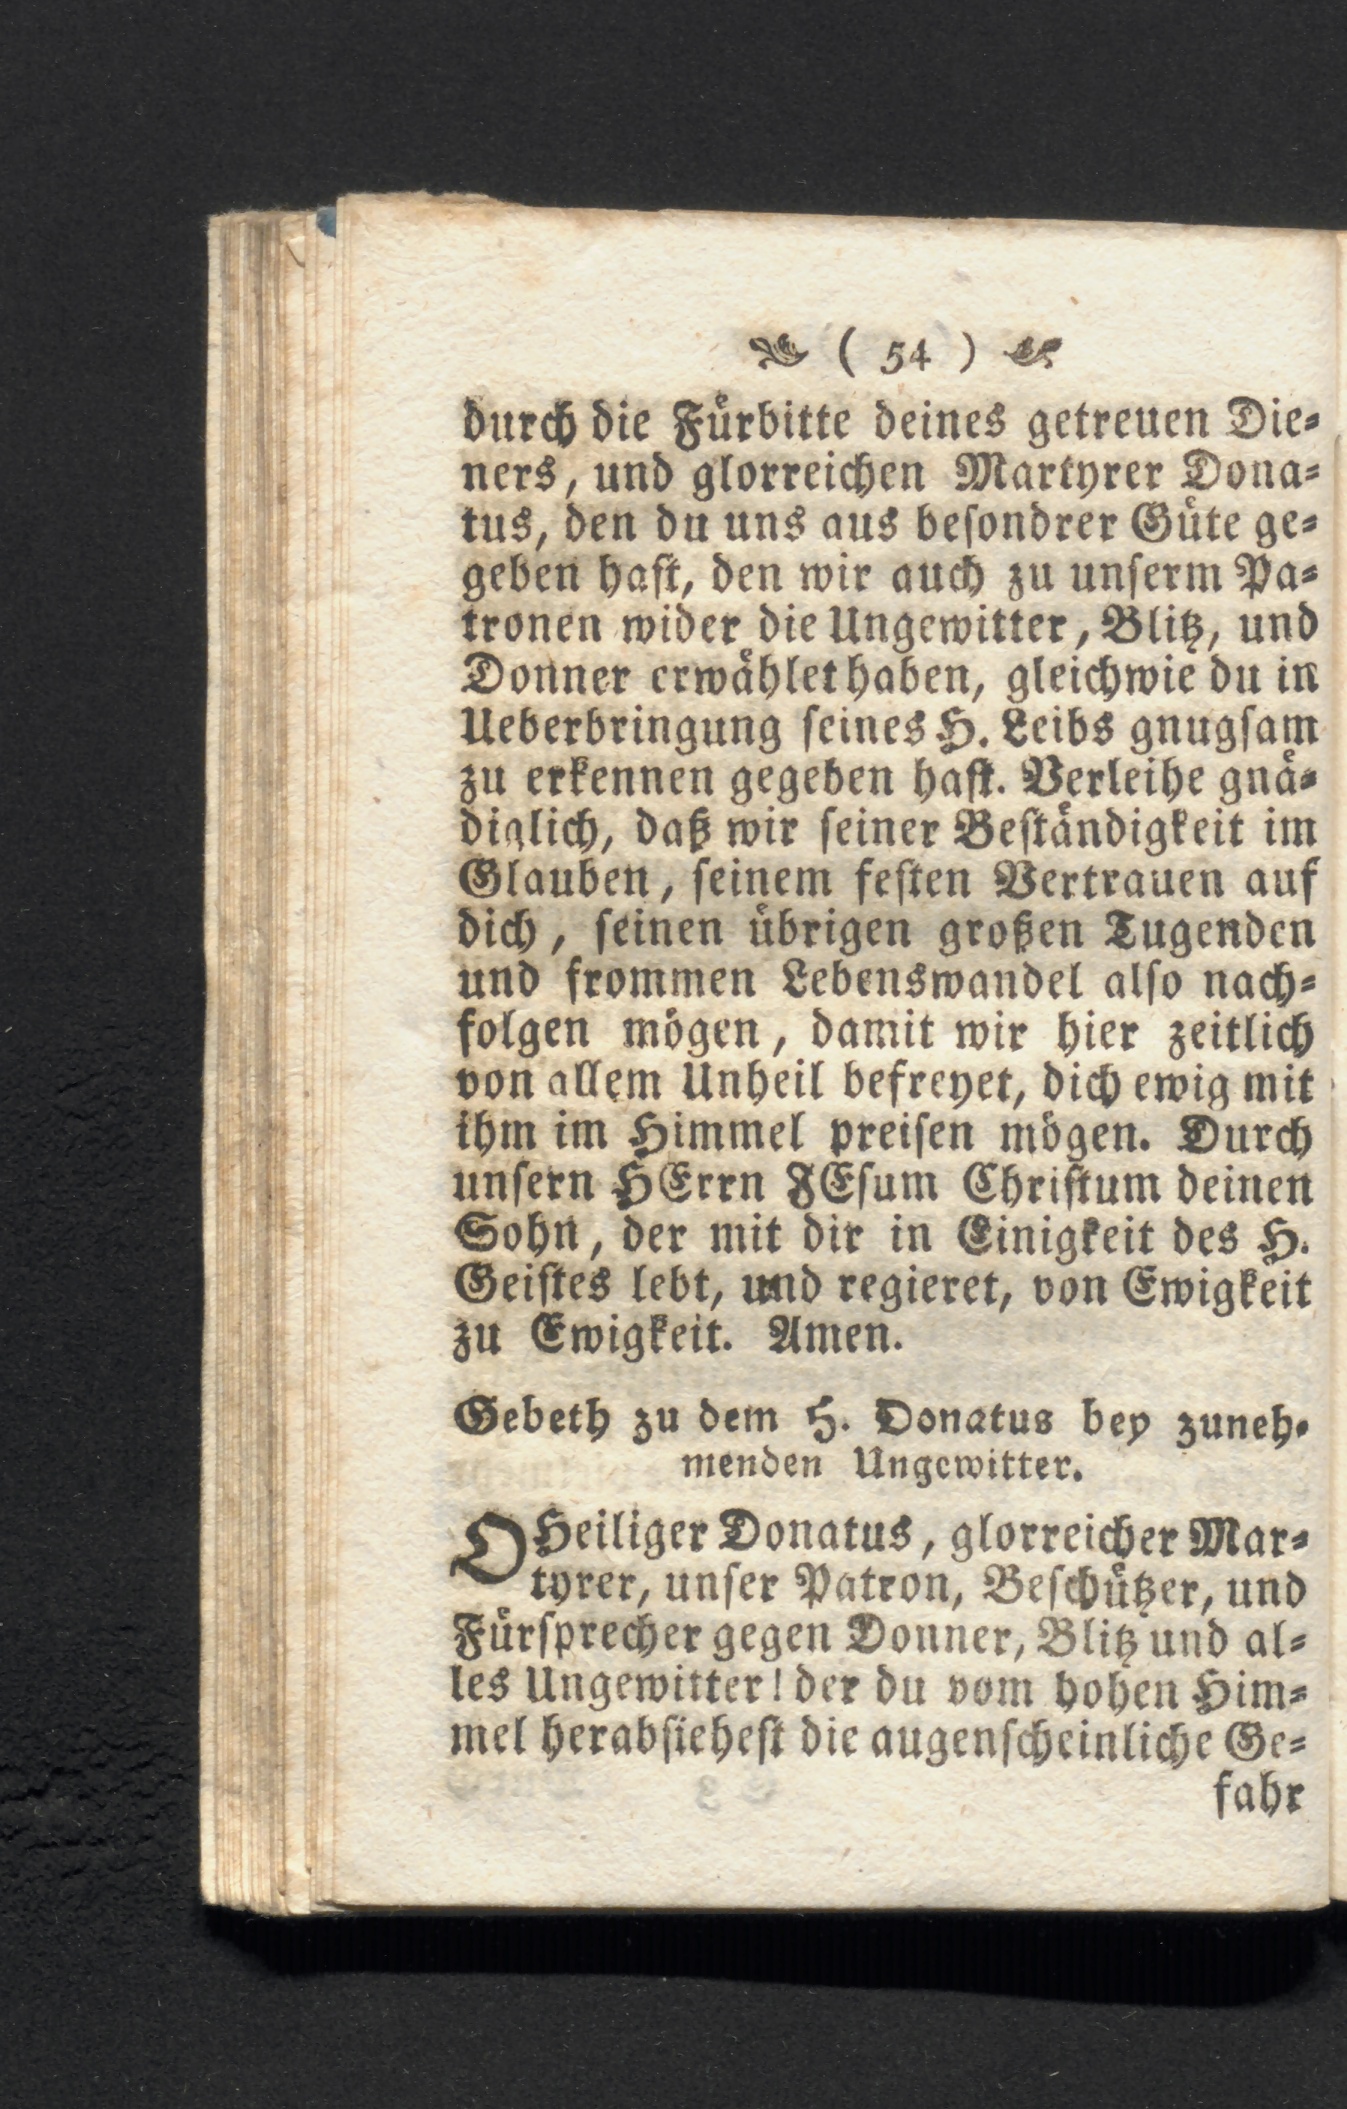 ( 54 )
durch die Fürbitte deines getreuen Die-
ners, und glorreichen Martyrer Dona-
tus, den du uns aus beſondrer Güte ge-
geben haſt, den wir auch zu unſerm Pa-
tronen wider die Ungewitter, Blitz, und
Donner erwählet haben, gleichwie du in
Ueberbringung ſeines H. Leibs gnugſam
zu erkennen gegeben haſt. Verleihe gnä-
diglich, daß wir ſeiner Beſtändigkeit im
Glauben, ſeinem feſten Vertrauen auf
dich, ſeinen übrigen großen Tugenden
und frommen Lebenswandel alſo nach-
folgen mögen, damit wir hier zeitlich
von allem Unheil befreyet, dich ewig mit
ihm im Himmel preiſen mögen. Durch
unſern HErrn JEſum Chriſtum deinen
Sohn, der mit dir in Einigkeit des H.
Geiſtes lebt, und regieret, von Ewigkeit
zu Ewigkeit. Amen.
Gebeth zu dem H. Donatus bey zuneh-
menden Ungewitter.
O Heiliger Donatus, glorreicher Mar-
tyrer, unſer Patron, Beſchützer, und
Fürſprecher gegen Donner, Blitz und al-
les Ungewitter! der du vom hohen Him-
mel herabſieheſt die augenſcheinliche Ge-
fahr